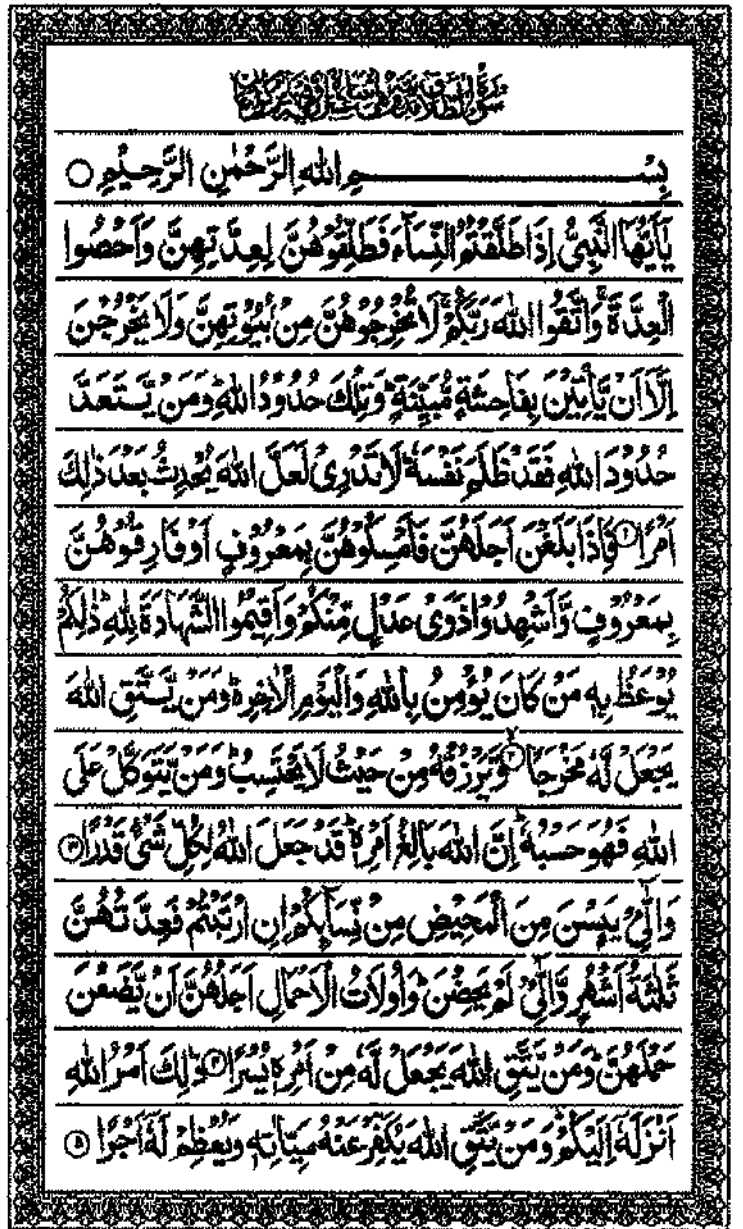 سورة الطلاق
بِسْــــــمِ اللهِ الرَّحْمٰنِ الرَّحِيْمِ ○
يٰٓاَيُّهَا النَّبِيُّ اِذَا طَلَّقْتُمُ النِّسَآءَ فَطَلِّقُوْهُنَّ لِعِدَّتِهِنَّ وَاَحْصُوا
الْعِدَّةَ ۚ وَاتَّقُوا اللهَ رَبَّكُمْ ۚ لَا تُخْرِجُوْهُنَّ مِنْۢ بُيُوْتِهِنَّ وَلَا يَخْرُجْنَ
اِلَّآ اَنْ يَّاْتِيْنَ بِفَاحِشَةٍ مُّبَيِّنَةٍ ؕ وَتِلْكَ حُدُوْدُ اللهِ ؕ وَمَنْ يَّتَعَدَّ
حُدُوْدَ اللهِ فَقَدْ ظَلَمَ نَفْسَهٗ ؕ لَا تَدْرِىْ لَعَلَّ اللهَ يُحْدِثُ بَعْدَ ذٰلِكَ
اَمْرًا ۝۱ فَاِذَا بَلَغْنَ اَجَلَهُنَّ فَاَمْسِكُوْهُنَّ بِمَعْرُوْفٍ اَوْ فَارِقُوْهُنَّ
بِمَعْرُوْفٍ وَّاَشْهِدُوْا ذَوَىْ عَدْلٍ مِّنْكُمْ وَاَقِيْمُوا الشَّهَادَةَ لِلّٰهِ ؕ ذٰلِكُمْ
يُوْعَظُ بِهٖ مَنْ كَانَ يُؤْمِنُ بِاللهِ وَالْيَوْمِ الْاٰخِرِ ؕ وَمَنْ يَّتَّقِ اللهَ
يَجْعَلْ لَّهٗ مَخْرَجًا ۝۲ وَّيَرْزُقْهُ مِنْ حَيْثُ لَا يَحْتَسِبُ ؕ وَمَنْ يَّتَوَكَّلْ عَلَى
اللهِ فَهُوَ حَسْبُهٗ ؕ اِنَّ اللهَ بَالِغُ اَمْرِهٖ ؕ قَدْ جَعَلَ اللهُ لِكُلِّ شَىْءٍ قَدْرًا ۝۳
وَالّٰٓئِىْ يَئِسْنَ مِنَ الْمَحِيْضِ مِنْ نِّسَآئِكُمْ اِنِ ارْتَبْتُمْ فَعِدَّتُهُنَّ
ثَلٰثَةُ اَشْهُرٍ وَّالّٰٓئِىْ لَمْ يَحِضْنَ ؕ وَاُولَاتُ الْاَحْمَالِ اَجَلُهُنَّ اَنْ يَّضَعْنَ
حَمْلَهُنَّ ؕ وَمَنْ يَّتَّقِ اللهَ يَجْعَلْ لَّهٗ مِنْ اَمْرِهٖ يُسْرًا ۝۴ ذٰلِكَ اَمْرُ اللهِ
اَنْزَلَهٗٓ اِلَيْكُمْ ؕ وَمَنْ يَّتَّقِ اللهَ يُكَفِّرْ عَنْهُ سَيِّاٰتِهٖ وَيُعْظِمْ لَهٗٓ اَجْرًا ۝۵